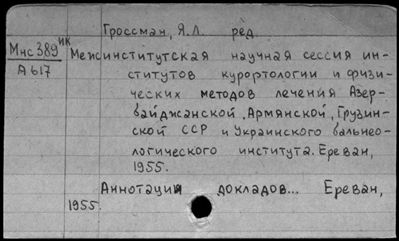 Гроссман, Я.Л. ред.
Мнс389 ИК
А617
Межинститутская научная сессия ин-
ститутов курортологии и физи-
ческих методов лечения Азер-
байджанской, Армянской, Грузин-
ской ССР и Украинского бальнео-
логического института. Ереван,
1955.
Аннотации докладов... Ереван,
1955.